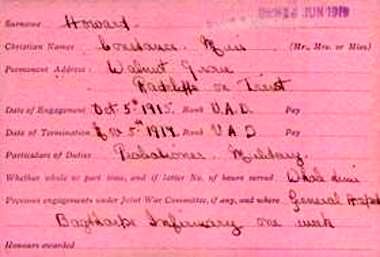 Surname Howard 6 JUN 1919
Christian Names Constance Miss (Mr., Mrs. or Miss)
Permanent Address: Walnut Grove
Radcliffe on Trent
Date of Engagement Oct 5th 1915. Rank V.A.D. Pay
Date of Termination 5th 1917. Rank V A D Pay
Particulars of Duties Probationer. Military.
Whether whole or part time, and if latter No. of hours served Whole time
Previous engagements under Joint War Committee, if any, and where General Hospital
Bagthorpe Infirmary one week
Honours awarded